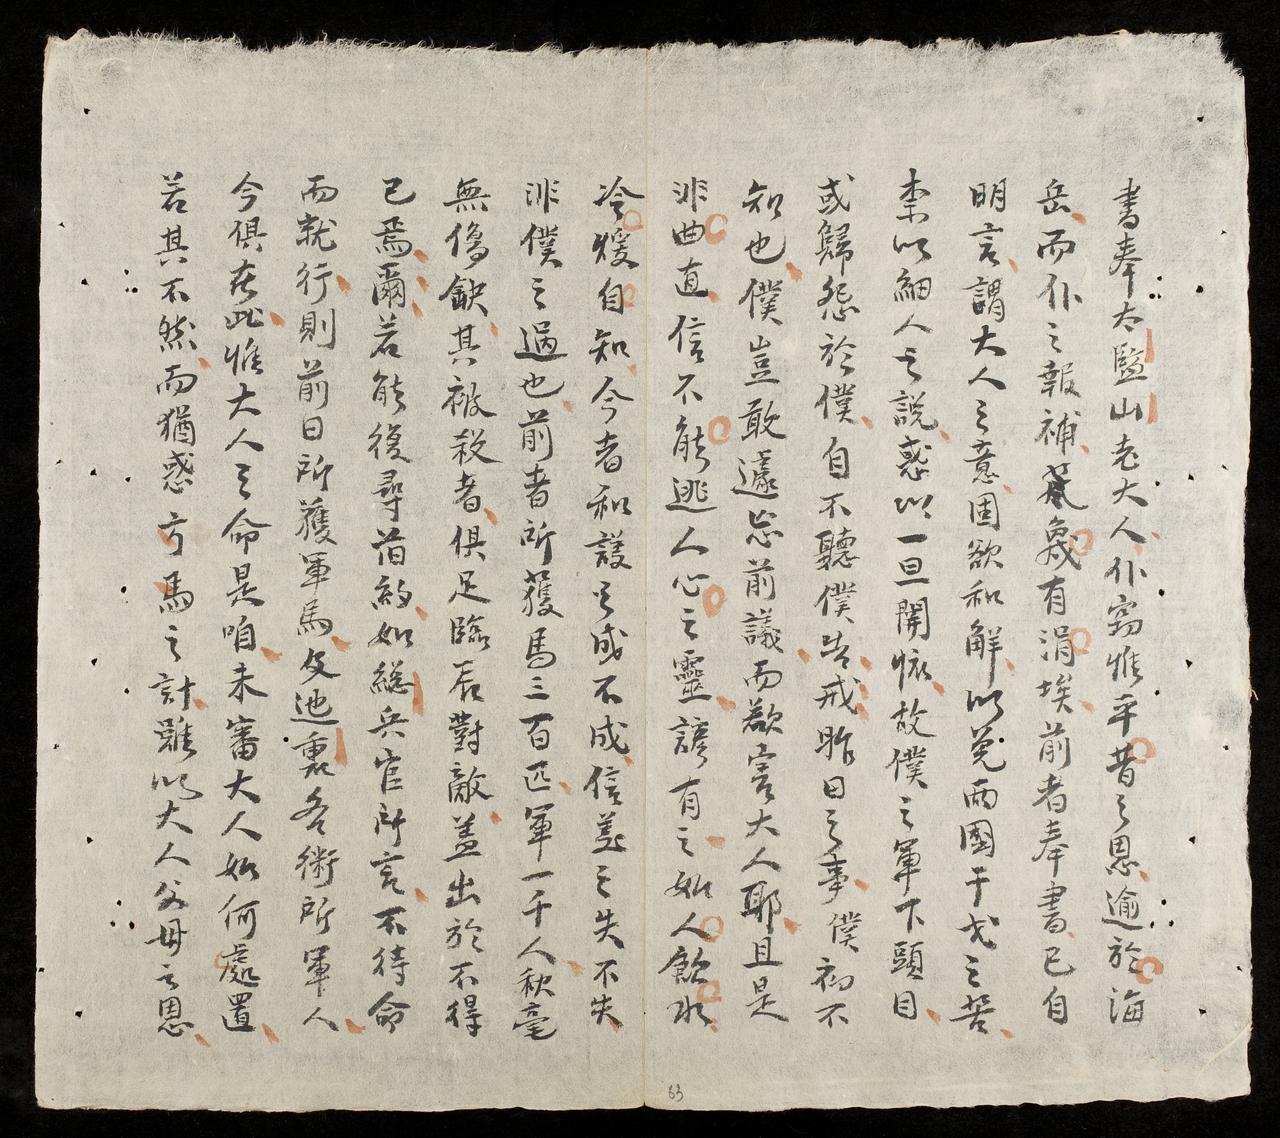 書奉太監山老大人仆竊惟平昔之恩逾於海
岳而仆之報補蔑有涓埃前者奉書已自
明言謂大人之意固欲和解以免兩國干戈之苦
柰以細人之説惑以一旦開懷故僕之軍下頭目
或歸怨於僕自不聽僕告戒昨日之事僕初不
知也僕豈敢遽忘前議而欲害大人耶且是
非曲直信不能逃人心之靈諺有之如人飲水
冷煖自知今者和護之成不成信義之失不失
非僕之過也前者所獲馬三百匹軍一千人秋毫
無傷缺其被殺者俱足臨辰對敵蓋出於不得
已焉爾若能復尋旧約如総兵官所言不待命
而就行則前日所獲軍馬及迆裏各衛所軍人
今俱在此惟大人之命是咱未審大人如何處置
若其不然而猶惑亏馬之計難以大人父母之恩
63